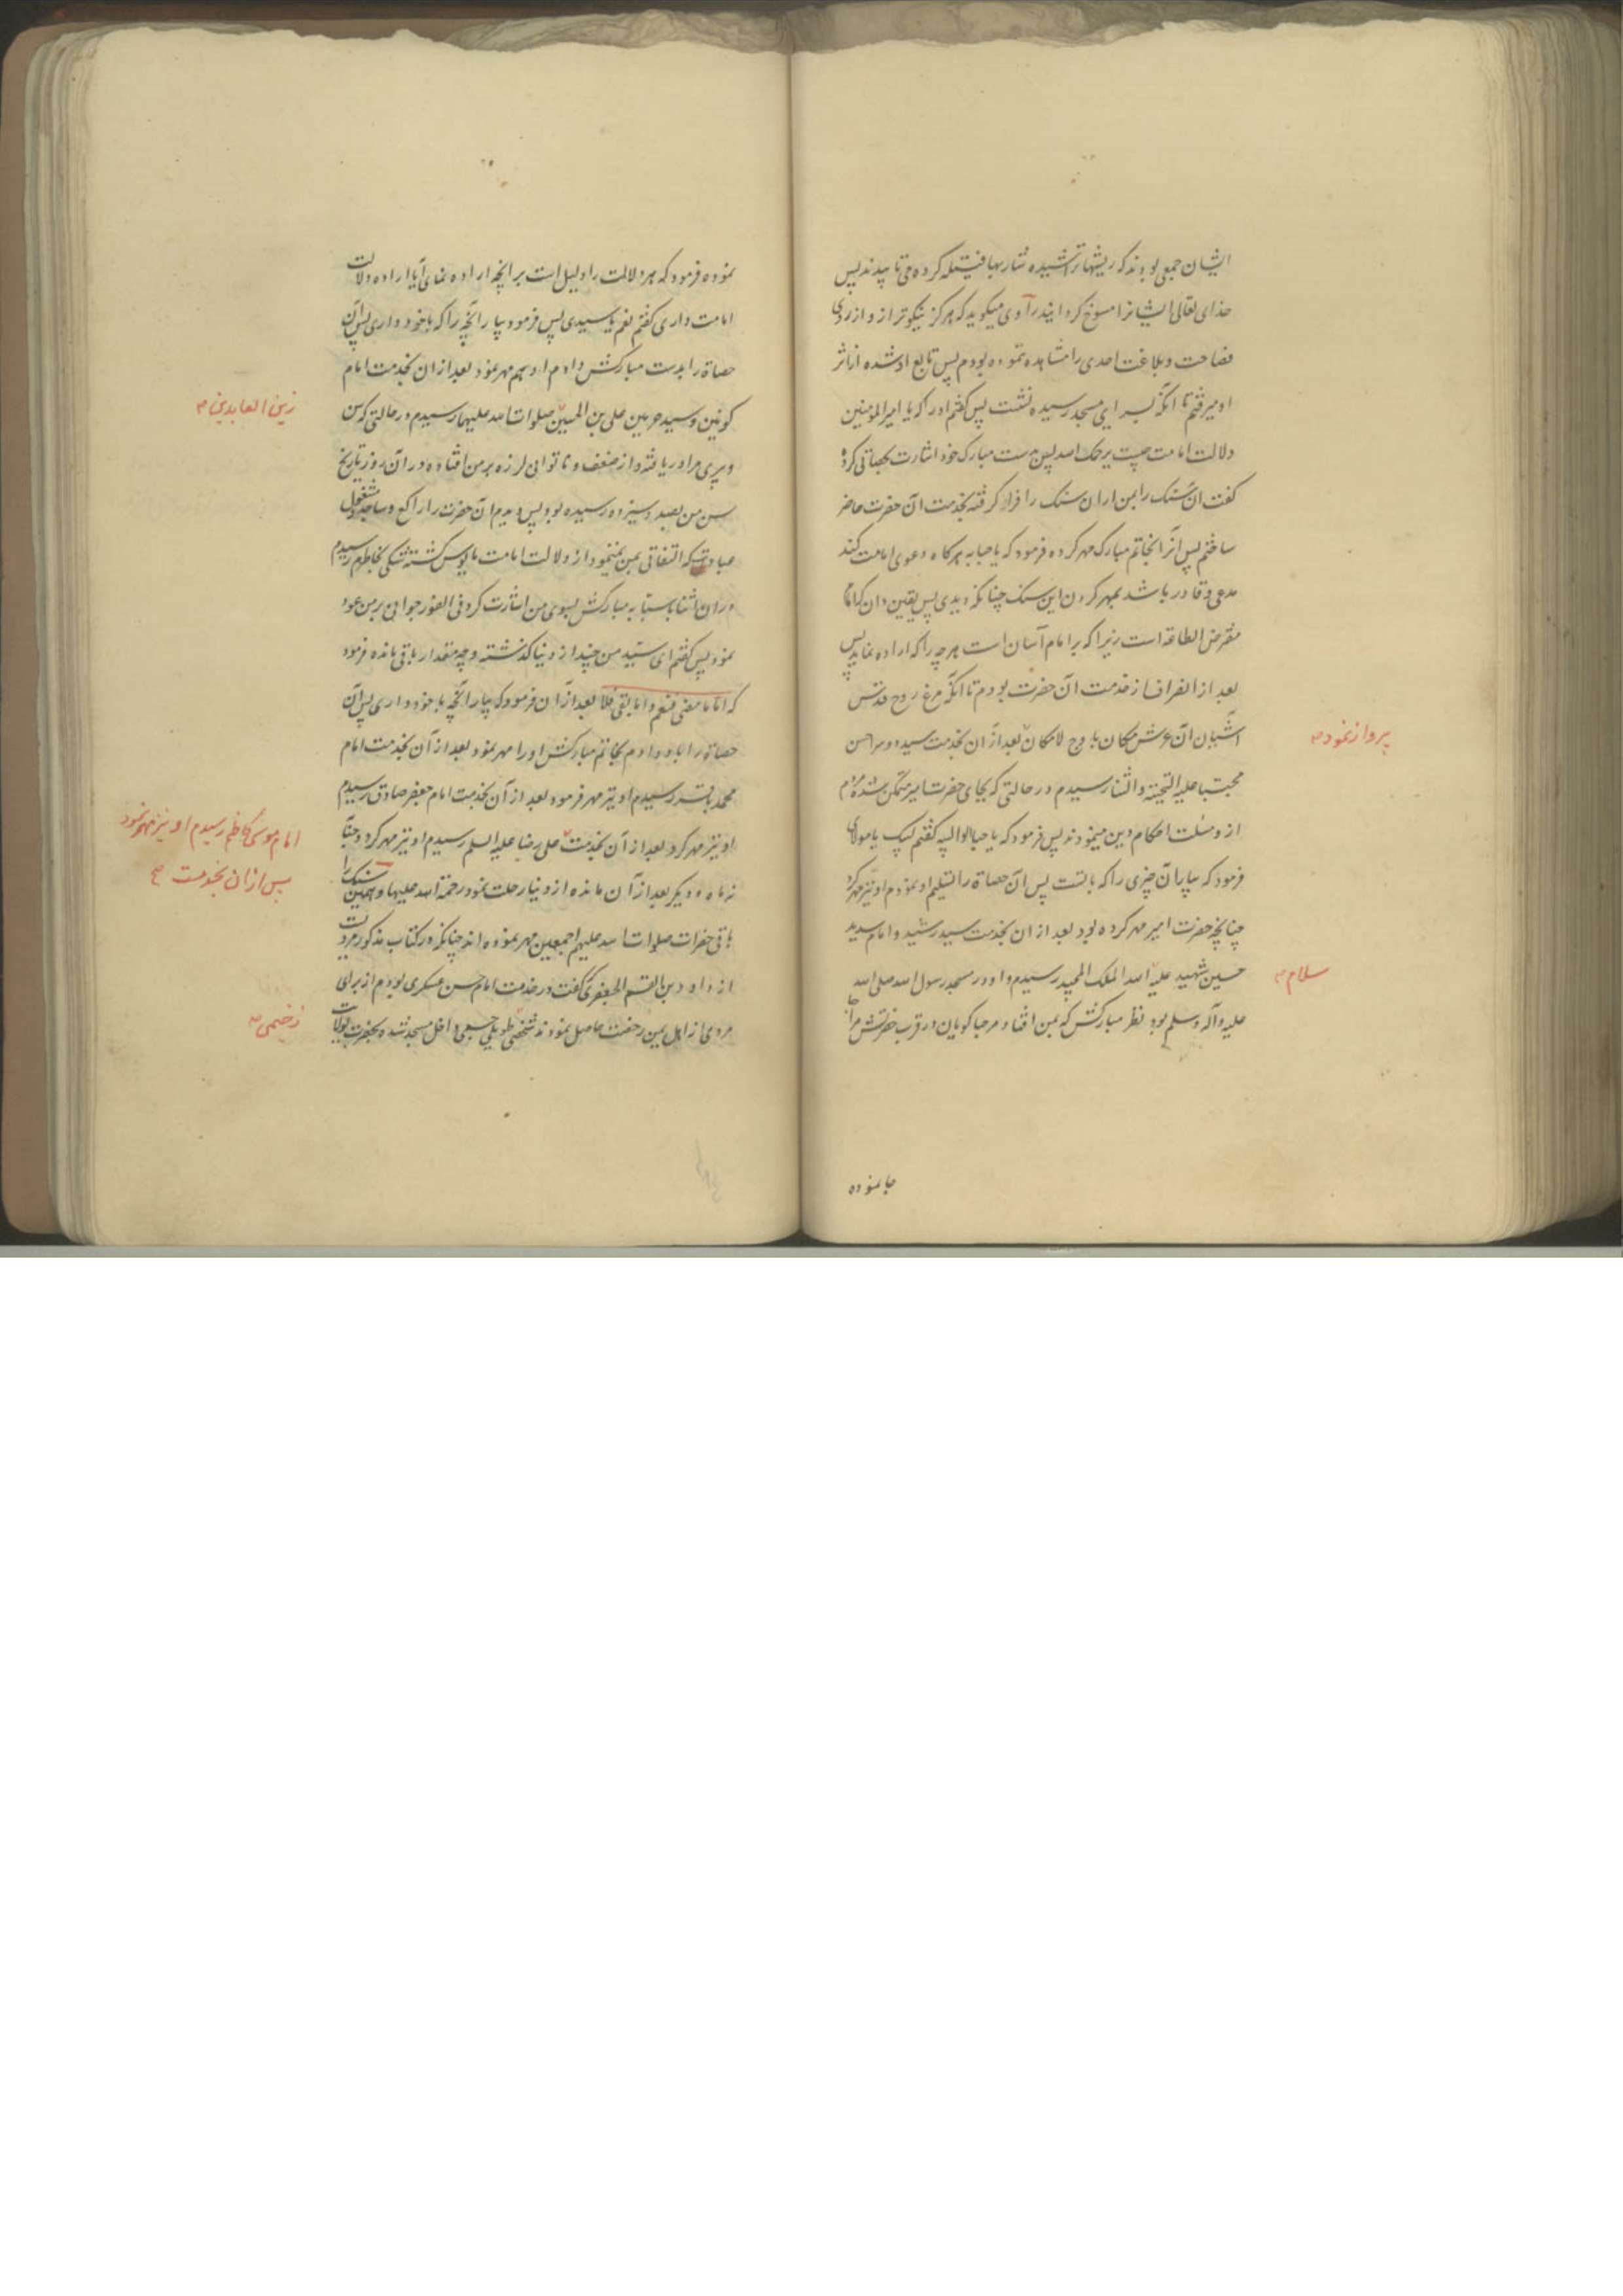 ایشان جمعی بودند که ریشها تراشیده شاربها فتیله کرده می تابیدند پس
خدای تعالی ایشانرا مسوخ کردانید راوی میکوید که هرکز نیکوتر از و از روی
فصاحت و بلاغت احدی را مشاهده ننموده بودم پس تابع او شده از اثر
او میرفتم تا آنکه بسرای مسجد رسیده نشست پس کفتم او را که یا امیرالمؤمنین
دلالت امامت چیست یرحمک الله پس بدست مبارک خود اشارت بحصاتی کرده
کفت آن سنک را بمن ار آن سنک را فرا کرفته بخدمت آن حضرت حاضر
ساختم پس آنرا بخاتم مبارک مهر کرده فرمود که یا حبابه هرکاه دعوی امامت کند
مدعی و قادر باشد بمهر کردن این سنک چنانکه دیدی پس یقین دان که امام
مفترض الطاعه است زیرا که بر امام آسان است هر چه را که اراده نماید پس
بعد از انصراف از خدمت آن حضرت بودم تا آنکه مرغ روح قدس
آشیان آن عرش مکان باوج لامکان بعد از آن بخدمت سید و سرا حسن
پرواز نمود
مجتبا علیه التحیة و الثنا رسیدم در حالتی که بجای حضرت امیر متمکن شده مردم
از و مسئلت احکام دین مینمودند پس فرمود که یا حبابا الوالبیه کفتم لبیک یا مولای
فرمود که بیار آن چیزی را که با تست پس آن حصاة را تسلیم او نمودم او نیز مهر کرد
چنانچه حضرت امیر مهر کرده بود بعد از آن بخدمت سید رشید و امام سدید
حسین شهید علیه الله الملک المجید رسیدم و او در مسجد رسول الله صلی الله
سلام
علیه وآله وسلم بود نظر مبارکش که بمن افتاد مرحبا کویان در قرب حضرتش مرا جا
جا نموده
نموده فرمود که هر دلالت را دلیل است بر آنچه اراده نمای آیا اراده دلالت
امامت داری کفتم نعم یا سیدی پس فرمود بیار آنچه را که با خود داری پس آن
حصاة را بدست مبارکش دادم او هم مهر نمود بعد از آن بخدمت امام
کونین و سید حرمین علی بن الحسین صلوات الله علیهما رسیدم در حالتی که سن
زین العابدین
و پیری مرا دریافته و از ضعف و ناتوانی لرزه بر من افتاده در آن روز تاریخ
سن من بصد و سیزده رسیده بود پس دیدم آن حضرت را راکع و ساجد و مشغول
عبادت که التفاتی بمن نمینمود از دلالت امامت مایوس کشته شکی بخاطرم رسیدم
در آن اثنا بسبابه مبارکش بسوی من اشارت کرد فی الفور جوانی بر من عود
نمود پس کفتم ای سید من چند از دنیا کذشته و چه مقدار باقی مانده فرمود
که اما ما مضی فنعم و اما بقی فلا بعد از آن فرمود که بیار آنچه با خود داری پس آن
حصاة را باو دادم بخاتم مبارکش او را مهر نمود بعد از آن بخدمت امام
محمد باقر رسیدم او نیز مهر فرمود بعد از آن بخدمت امام جعفر صادق رسیدم
او نیز مهر کرد بعد از آن بخدمت علی رضا علیه السلم رسیدم او نیز مهر کرد و حبابه
امام موسی کاظم رسیدم او نیز مهر نمود
پس از آن بخدمت
نه ماه دیکر بعد از آن مانده از دنیا رحلت نمود رحمة الله علیها و همین سنک را
باقی حضرات صلوات الله علیهم اجمعین مهر نموده اند چنانکه در کتاب مذکور مرویست
از داود بن القسم الجعفری کفت در خدمت امام حسن عسکری بودم از برای
مردی از اهل یمن رخصت حاصل نمودند شخصی طویلی جسیمی داخل مسجد شده بحضرت بولایت